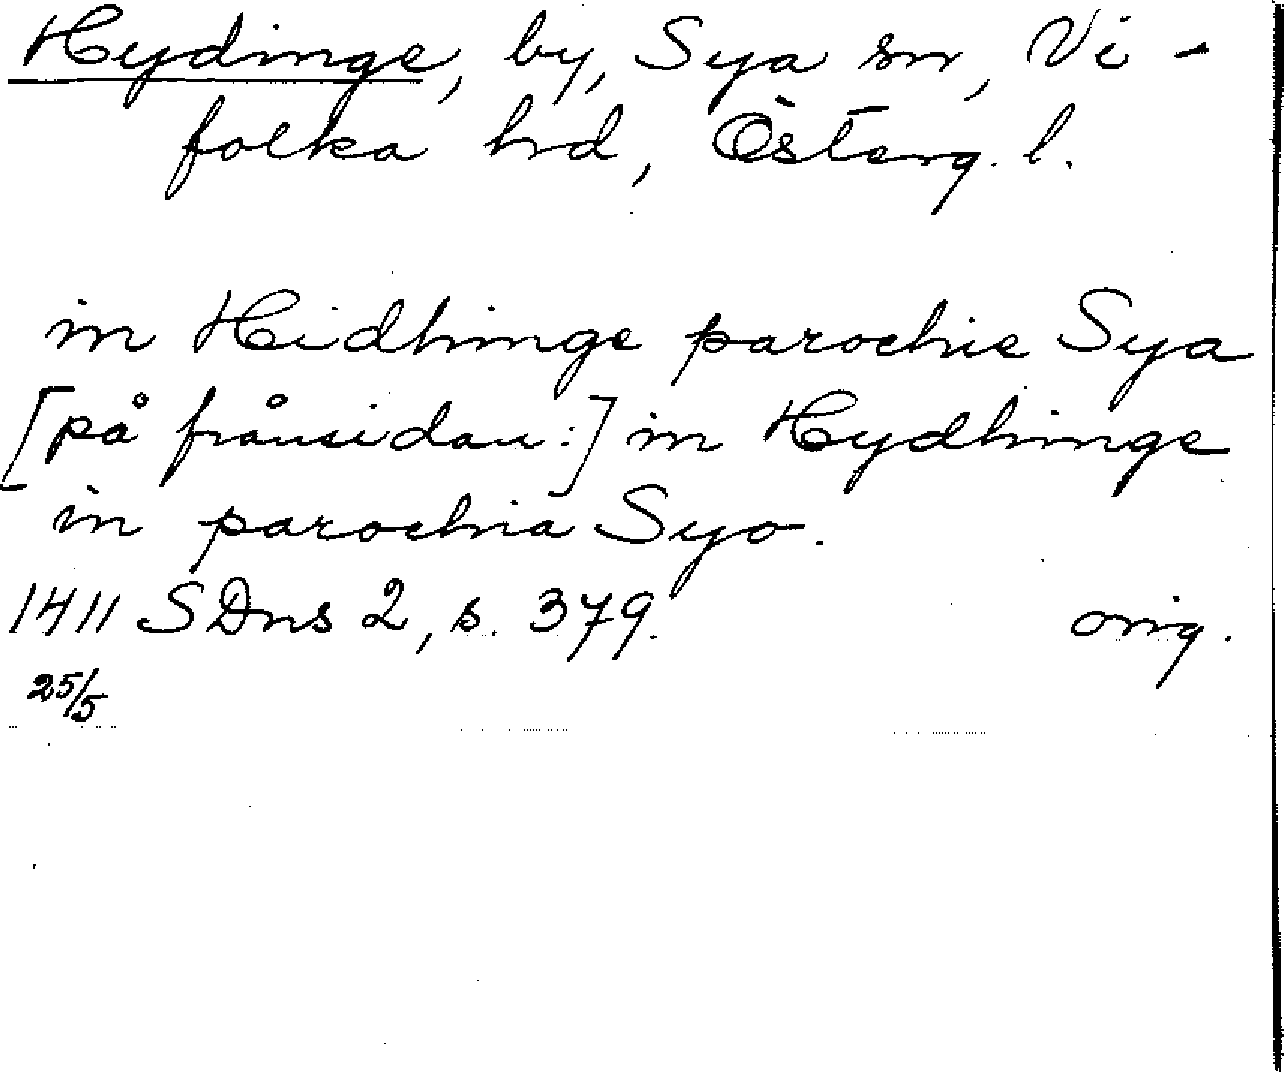 Hydinge, by, Sya sn, Vi-
folka hrd, Österg. l.
in Hidhinge parochie Sya
[på frånsidan:] in Hydhinge
in parochia Syo.
1411 SDns 2, s. 379. orig.
25/5